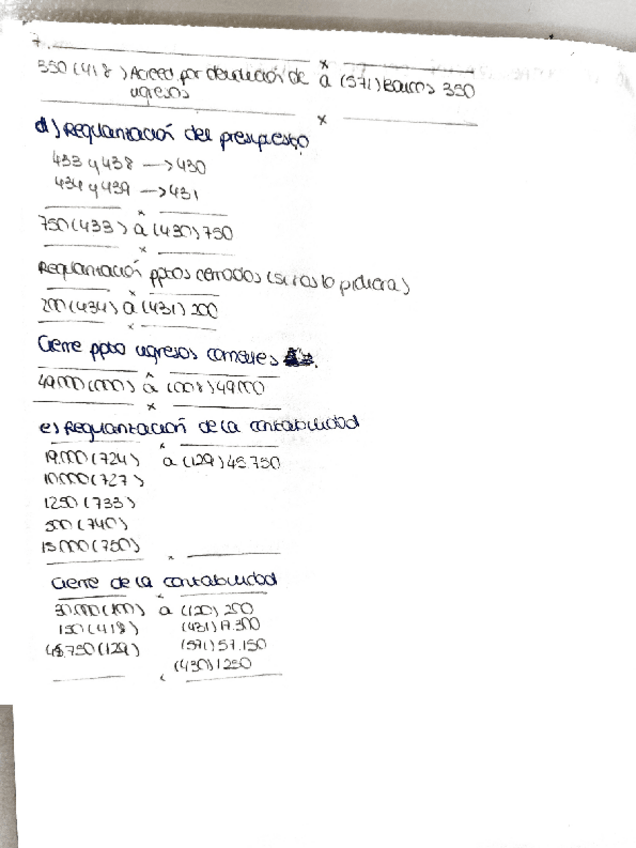 7.
350 (418) Acreed por devolución de a (571) Bancos 350
ingresos
d) Regularización del presupuesto
433 y 438 → 430
434 y 439 → 431
750 (433) a (430) 750
Regularización pptos cerrados (si nos lo pidiera)
200 (434) a (431) 200
Cierre ppto ingresos corrientes
49.000 (000) a (008) 49.000
e) Regularización de la contabilidad
19.000 (724) a (129) 45.750
10.000 (727)
1250 (733)
500 (740)
15.000 (750)
Cierre de la contabilidad
30.000 (100) a (120) 200
150 (418) (431) 17.300
45.750 (129) (571) 57.150
(430) 1250